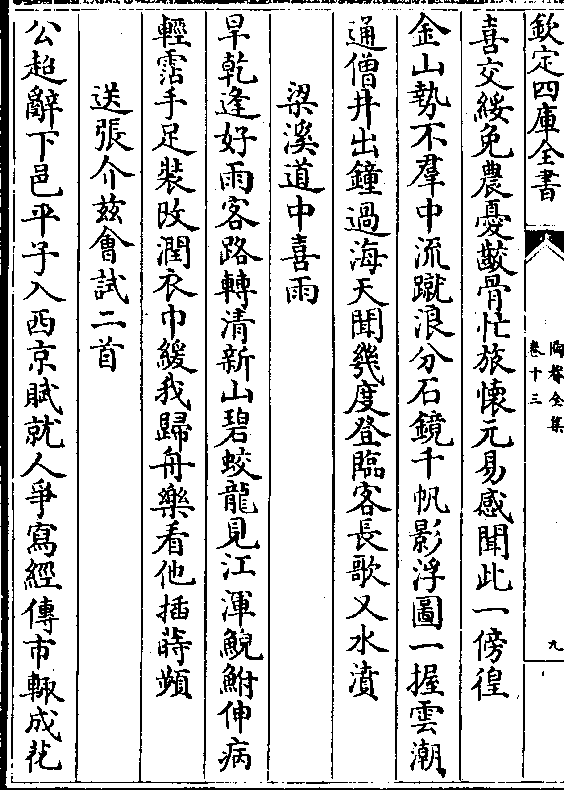 欽定四庫全書
陶菴全集
卷十三
九
喜交綏免農憂齩骨忙旅懷元易感聞此一傍徨
金山勢不羣中流蹴浪分石鏡千帆影浮圖一握雲潮
通僧井出鐘過海天聞幾度登臨客長歌又水濆
梁溪道中喜雨
旱乾逢好雨客路轉清新山碧蛟龍見江渾鯢鮒伸病
輕霑手足裝攺潤衣巾緩我歸舟樂看他插蒔頻
送張介兹會試二首
公超辭下邑平子入西京賦就人爭寫經傳市輙成花